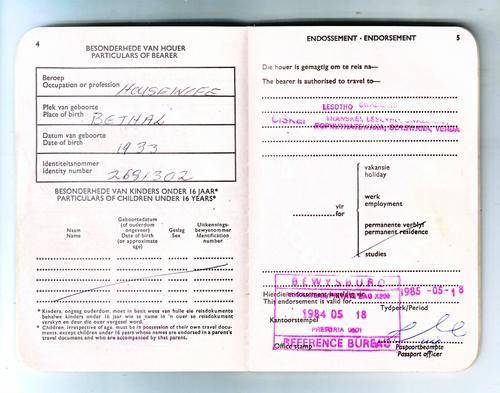 4
BESONDERHEDE VAN HOUER
PARTICULARS OF BEARER
Beroep
Occupation or profession HOUSEWIFE
Plek van geboorte
Place of birth BETHAL
Datum van geboorte
Date of birth 1933
Identiteitsnommer
Identity number 2691302
BESONDERHEDE VAN KINDERS ONDER 16 JAAR*
PARTICULARS OF CHILDREN UNDER 16 YEARS*
Naam
Name
Geboortedatum
(of ouderdom
ongeveer)
Date of birth
(or approximate
age)
Geslag
Sex
Uitkennings-
bewysnommer
Identification
number
* Kinders, ongeag ouderdom, moet in besit wees van hulle eie reisdokumente
behalwe kinders onder 16 jaar wie se name in 'n ouer se reisdokument
verskyn en deur die ouer vergesel word.
* Children, irrespective of age, must be in possession of their own travel docu-
ments, except children under 16 years whose names are endorsed in a parent's
travel documents and who are accompanied by that parent.
ENDOSSEMENT · ENDORSEMENT 5
Die houer is gemagtig om te reis na—
The bearer is authorised to travel to—
LESOTHO
CISKEI TRANSKEI,
BOPHUTHATSWANA, BOTSWANA, VENDA
vir
for
vakansie
holiday
werk
employment
permanente verblyf
permanent residence
studies
BEWYSBURO
Hierdie
This endorsement is valid for
1985 -05- 18
Tydperk/Period
1984 05 18
Kantoorstempel
PRETORIA 0001
REFERENCE BUREAU
Office stamp
Paspoortbeampte
Passport officer